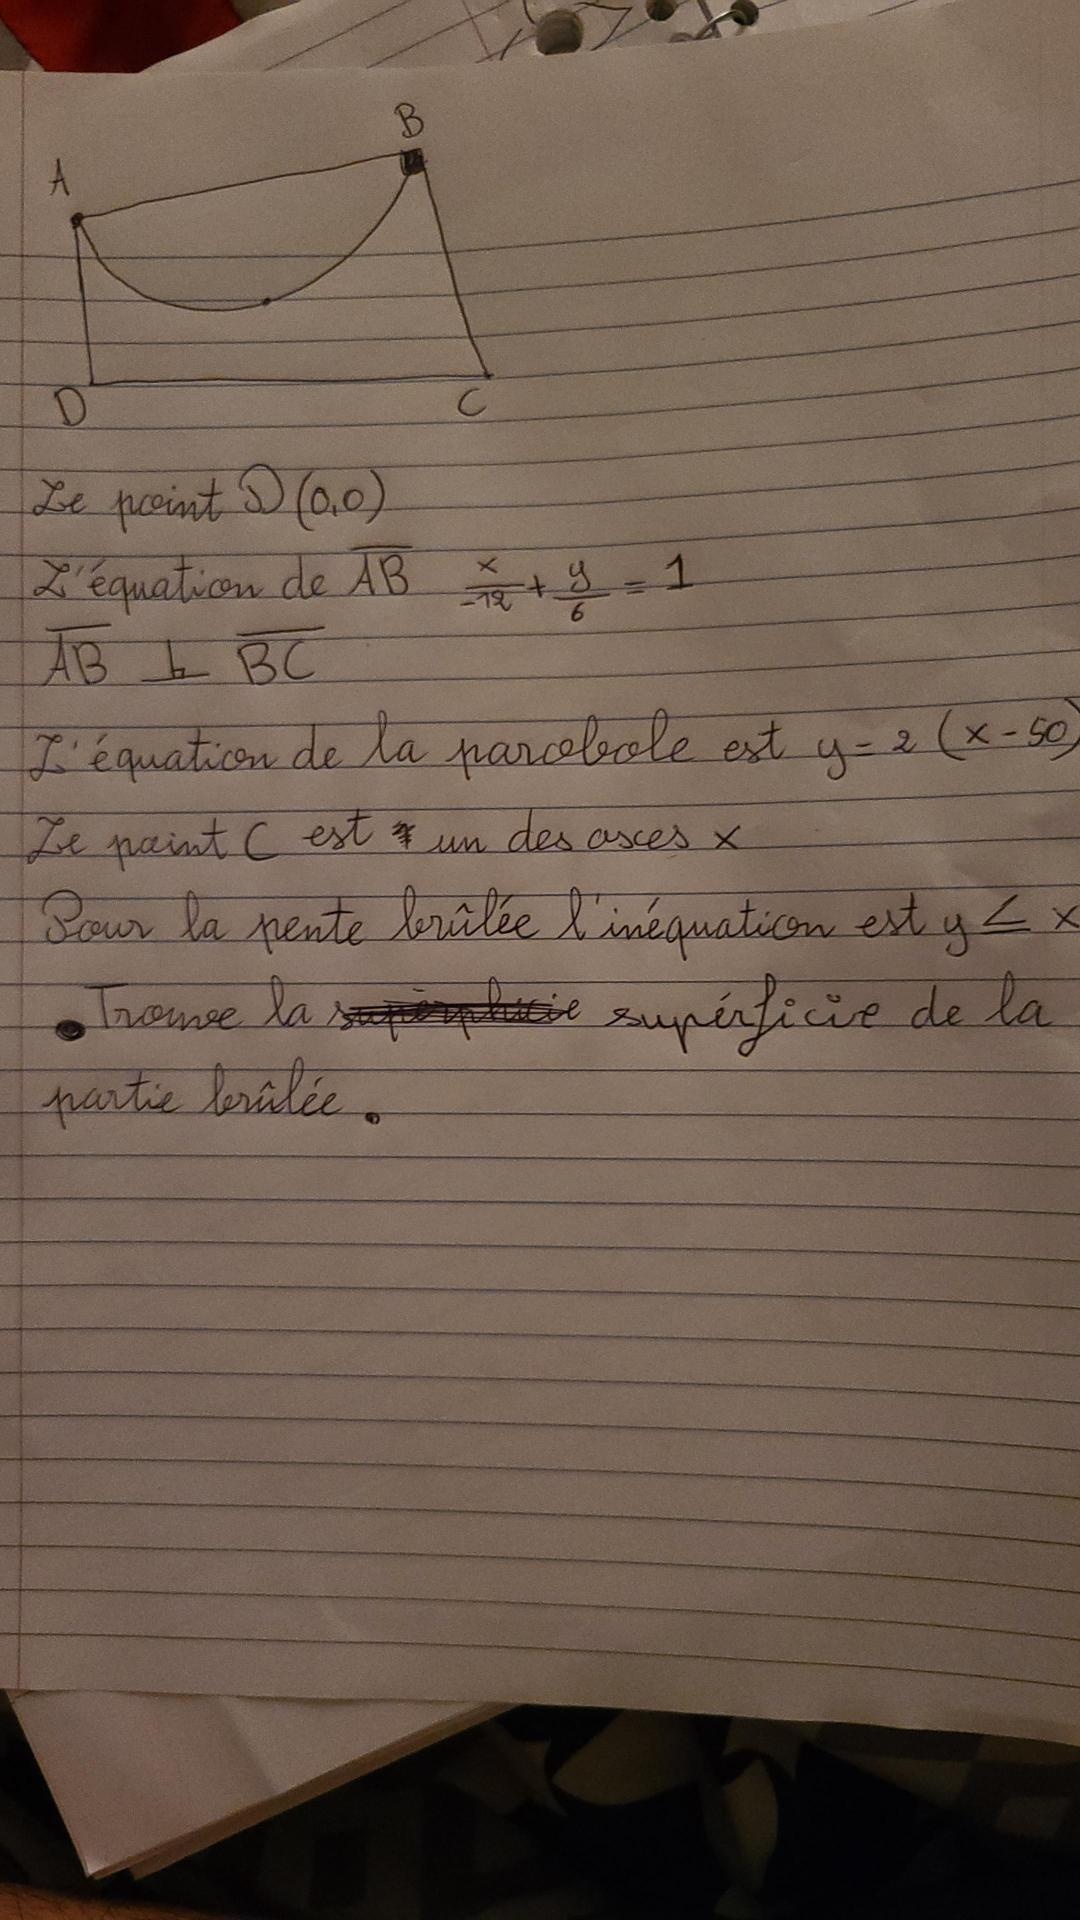 B
A
D
C
Le point D(0,0)
L'équation de AB x/-12 + y/6 = 1
AB ⊥ BC
L'équation de la parobole est y = 2 (x - 50)
Le point C est un des asces x
Pour la pente brûlée l'inéquation est y ≤ x
• Trouve la supérficie de la
partie brûlée.